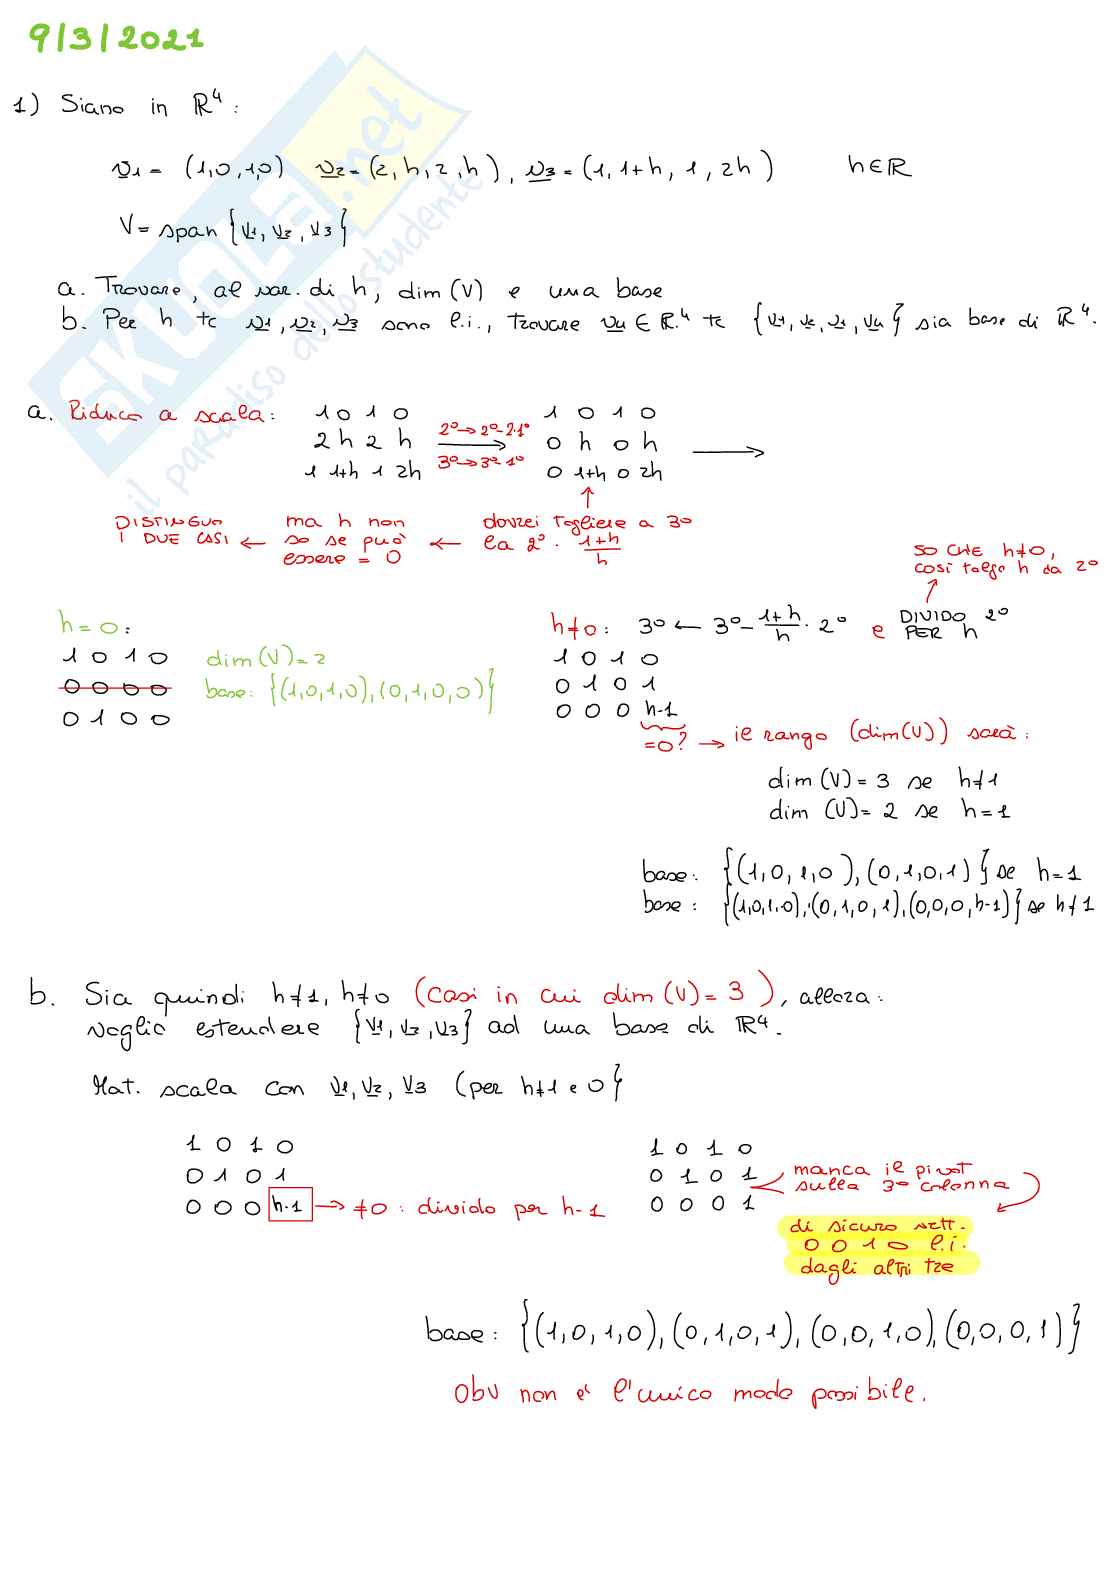 9/3/2021
1) Siano in ℝ⁴:
v1 = (1,0,1,0) v2 = (2,h,2,h), v3 = (1,1+h,1,2h) h∈ℝ
V = span {v1, v2, v3}
a. Trovare, al var. di h, dim (V) e una base
b. Per h tc v1, v2, v3 sono l.i., trovare v4 ∈ ℝ⁴ tc {v1, v2, v3, v4} sia base di ℝ⁴.
a. Riduco a scala:
1 0 1 0 1 0 1 0
2 h 2 h 2°→2°-2·1° → 0 h 0 h →
1 1+h 1 2h 3°→3°-1° 0 1+h 0 2h
DISTINGUO I DUE CASI ← ma h non so se può essere = 0 ← dovrei togliere a 3° la 2° · (1+h)/h
SO CHE h≠0,
così tolgo h da 2°
h = 0:
1 0 1 0 dim (V) = 2
0 0 0 0 base: {(1,0,1,0), (0,1,0,0)}
0 1 0 0
h≠0: 3° ← 3° - (1+h)/h · 2° e DIVIDO 2° PER h
1 0 1 0
0 1 0 1
0 0 0 h-1
=0? → il rango (dim(V)) sarà:
dim (V) = 3 se h≠1
dim (V) = 2 se h = 1
base: {(1,0,1,0), (0,1,0,1)} se h=1
base: {(1,0,1,0), (0,1,0,1), (0,0,0,h-1)} se h≠1
b. Sia quindi h≠1, h≠0 (casi in cui dim (V) = 3), allora:
voglio estendere {v1, v2, v3} ad una base di ℝ⁴.
Mat. scala con v1, v2, v3 (per h≠1 e 0}
1 0 1 0
0 1 0 1
0 0 0 h-1 → ≠0: divido per h-1
1 0 1 0
0 1 0 1 manca il pivot
0 0 0 1 sulla 3° colonna
di sicuro vett.
0 0 1 0 l.i.
dagli altri tre
base: {(1,0,1,0), (0,1,0,1), (0,0,1,0), (0,0,0,1)}
Obv non è l'unico modo possibile.
SKUOLA.net
il paradiso dello studente